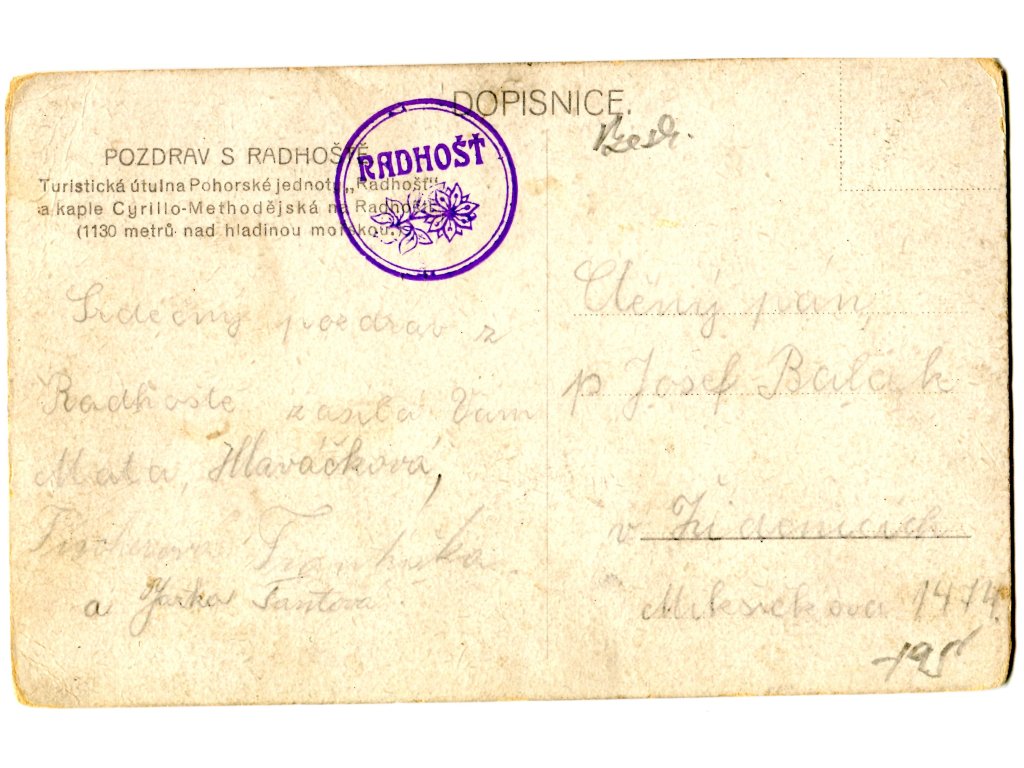 DOPISNICE.
POZDRAV S RADHOŠTĚ
Turistická útulna Pohorské jednoty „Radhošť“
a kaple Cyrillo-Methodějská na Radhošti
(1130 metrů nad hladinou mořskou.)
RADHOŠŤ
Srdečný pozdrav z
Radhoště zasílá Vám
Mata, Hlaváčková,
Frantiska
a Jarka Fantova
Ctěný pán,
p Josef Balák
v Židenicích
Mikšíčkova 1474